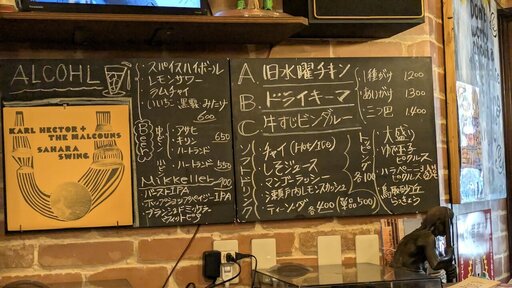 ALCOHL
スパイスハイボール
レモンサワー
ラムチャイ
いいちこ
黒糖
みたけ
600
KARL HECTOR + THE MALCOUNS
SAHARA SWING
Beer
中ビン
アサヒ
キリン
650
ハートランド
小ビン
ハートランド 550
Mikkeller 900
バーストIPA
A. 旧水曜チキン
B. ドライキーマ
C. 牛すじビンダルー
1種がけ 1200
あいがけ 1300
三つ巴 1400
ソフトドリンク
チャイ (Hot/ICE)
しそジュース
マンゴーラッシー
瀬戸内レモンスカッシュ
ラッシー
各400 (単品500)
トッピング
各100
大盛り
ゆで玉子
ピクルス
ハラペーニョ
ピクルス
鳥取砂丘
らっきょう